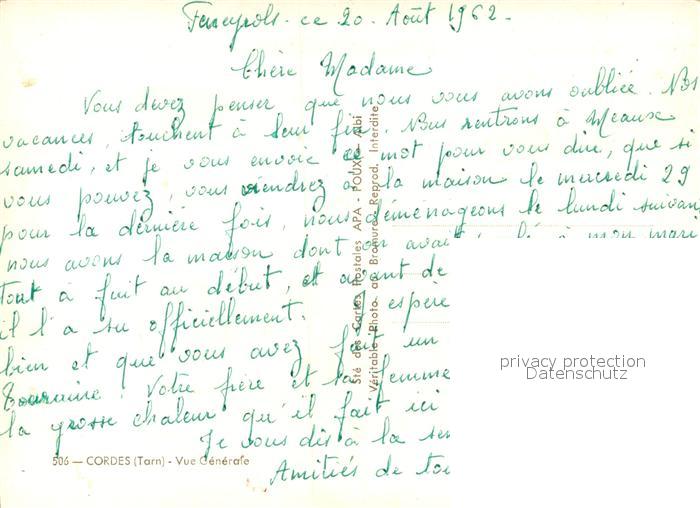 ce 20 Août 1962 -
Chère Madame
Vous devez penser que nous vous avons oubliée. Nos
vacances, touchent à leur fin. Nous rentrons à Meaux
samedi, et je vous envoie ce mot pour vous dire, que si
vous pouvez, vous viendrez à la maison le mercredi 29
pour la dernière fois, nous déménageons le lundi suivant
nous avons la maison dont on avait à mon mari
tout à fait au début, et avant de
il l'a su officiellement. J'espère
bien et que vous avez fait un
Touraine. Votre frère et sa femme
la grosse chaleur qu'il fait ici
Je vous dis à la
Amitiés de
506 — CORDES (Tarn) - Vue Générale
Sté des Cartes Postales APA - POUX - Albi
Véritable Photo au Bromure - Reprod. Interdite
privacy protection
Datenschutz